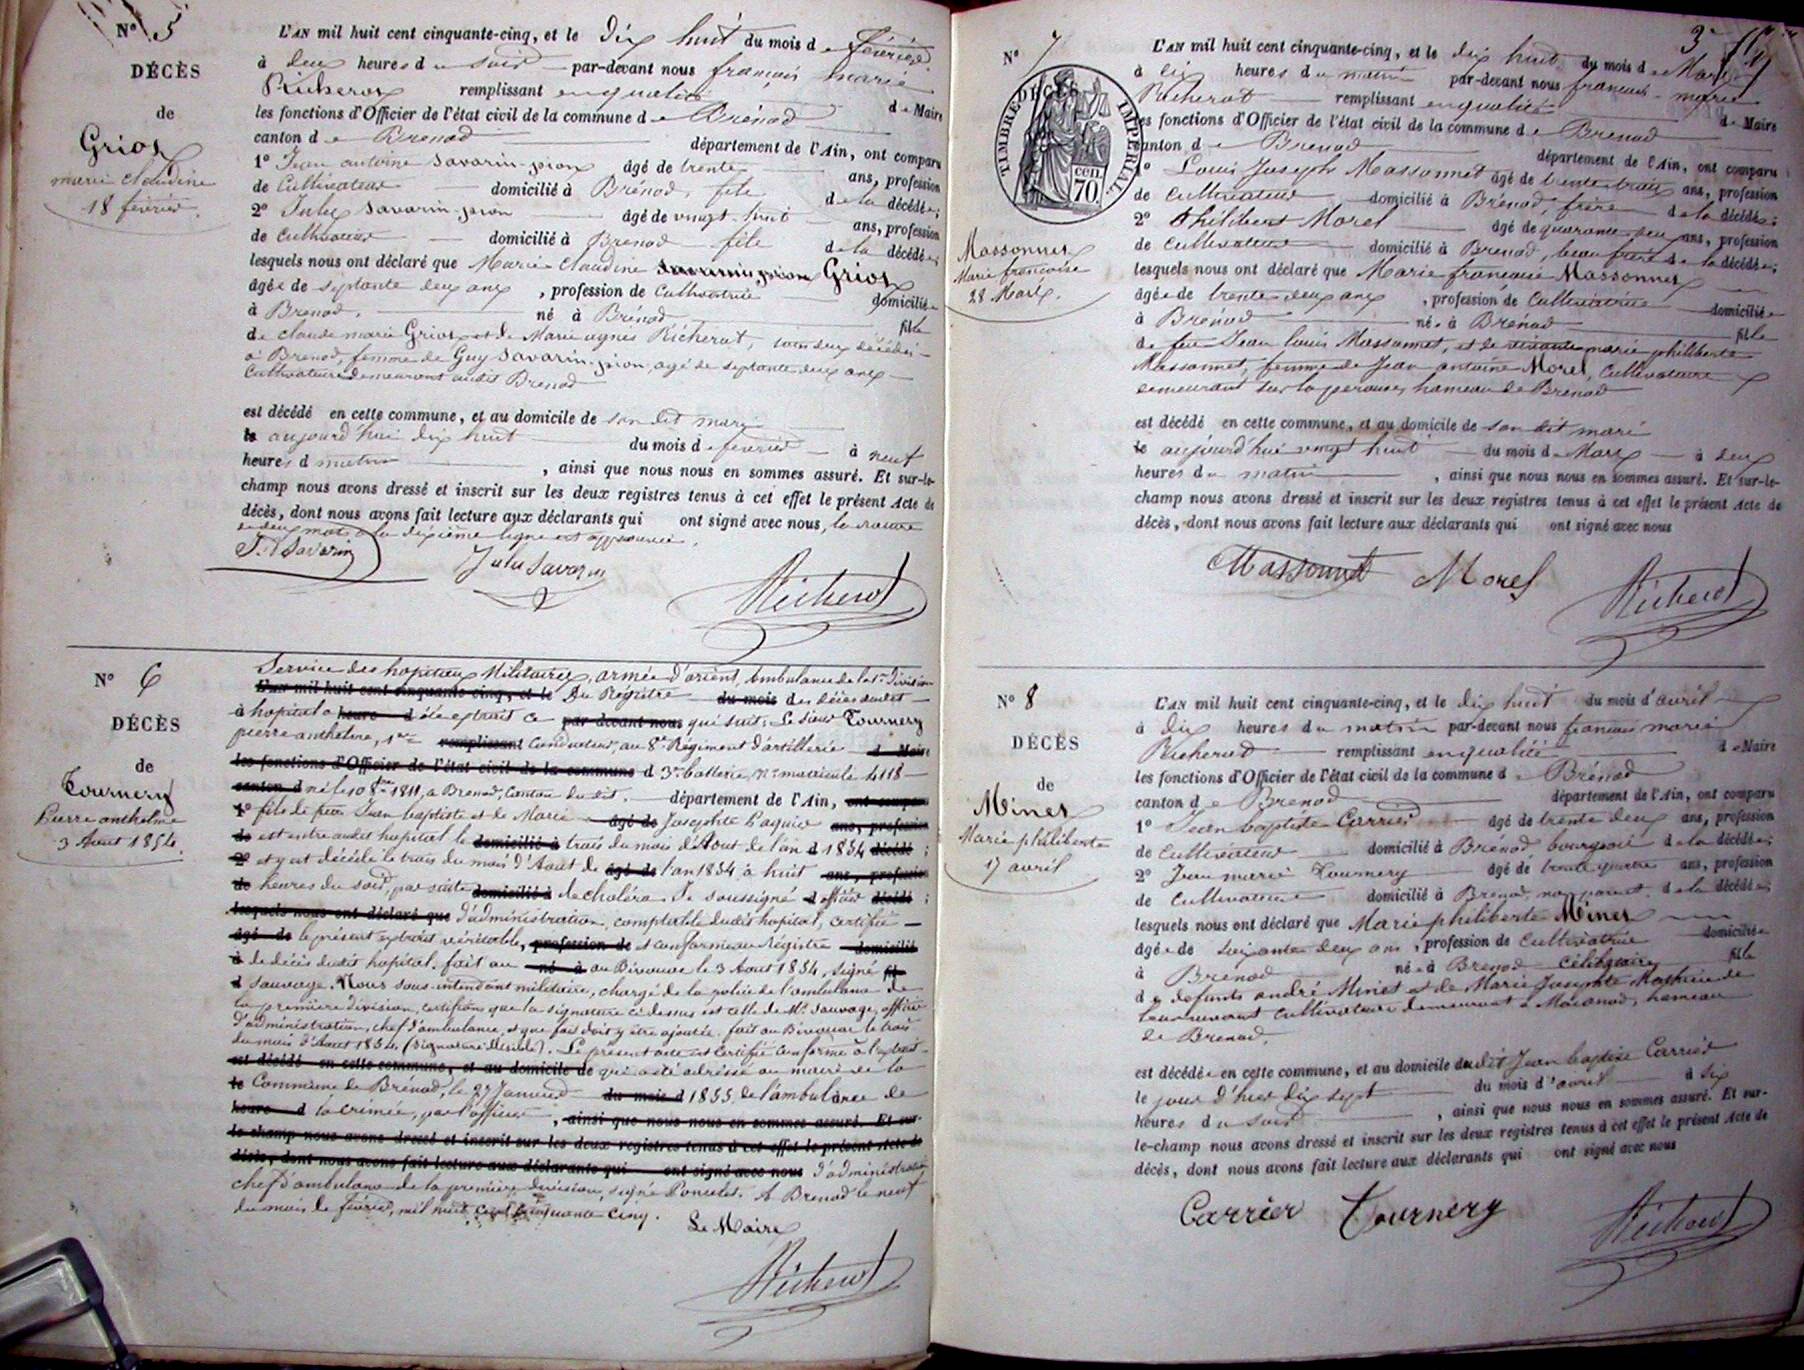 N° 5
DÉCÈS
de
Griot
marie claudine
18 février
L'AN mil huit cent cinquante-cinq, et le dix huit du mois de février
à deux heures du soir par-devant nous françois marie
Richerot remplissant en qualité de Maire
les fonctions d'Officier de l'état civil de la commune de Brénod
canton de Brenod département de l'Ain, ont comparu
1° Jean antoine Savarin-pion âgé de trente ans, profession
de Cultivateur domicilié à Brénod, fils de la décédée;
2° Jules Savarin-pion âgé de vingt-huit ans, profession
de Cultivateur domicilié à Brenod fils de la décédée;
lesquels nous ont déclaré que Marie Claudine Savarin pion Griot
âgée de septante deux ans, profession de Cultivatrice domiciliée
à Brenod, né à Brénod fille
de claude marie Griot et de Marie agnès Richerot, tous deux décédés
à Brenod, femme de Guy Savarin-pion, agé de septante deux ans
Cultivateur demeurant audit Brenod
est décédé en cette commune, et au domicile de son dit mari
le aujourd'hui dix huit du mois de février à neuf
heures d matin, ainsi que nous nous en sommes assuré. Et sur-le-
champ nous avons dressé et inscrit sur les deux registres tenus à cet effet le présent Acte de
décès, dont nous avons fait lecture aux déclarants qui ont signé avec nous, la rature
de deux mots à la dixième ligne est approuvée.
J. A Savarin
Jules Savarin
Richerot
N° 6
DÉCÈS
de
Tournery
Pierre anthelme
3 Aout 1854.
Service des hopitaux Militaires, armée d'orient, Ambulance de la 1re Division
L'an mil huit cent cinquante-cinq, et le Du Régistre du mois des décès dudit
à hopital a heure d été extrait ce par-devant nous qui suit: Le sieur Tournery
pierre anthelme, 1er remplissant Conducteur, au 8e Régiment d'artillerie de Maire
les fonctions d'Officier de l'état civil de la commune d 3e batterie, n° matricule 4118
canton d né le 10 8bre 1811, a Brenod, Canton du dit. département de l'Ain, ont comparu
1° fils de feu Jean baptiste et de Marie âgé de Josephte Paquier ans, profession
de est entré audit hopital le domicilié à trois du mois d'Aout de l'an d 1854 décédé;
2° et y est décédé le trois du mois d'Aout de âgé de l'an 1854 à huit ans, profession
de heures du soir, par suite domicilié à de choléra Je soussigné d officier décédé;
lesquels nous ont déclaré que d'administration, comptable dudit hopital, certifie
âgé de le présent extrait véritable, profession de et conforme au Régistre domicilié
à de décès dudit hopital. fait au né à au Bivouac le 3 Aout 1854, signé fil
d Sauvage. Nous sous-intendant militaire, chargé de la police de l'ambulance de
la première division, certifions que la signature ci dessus est celle de Mr. Sauvage, officier
d'administration, chef d'ambulance, et que foi doit y être ajoutée. fait au Bivouac le trois
du mois d'Aout 1854 (Signature illisible). Le présent acte est certifié conforme à l'extrait
est décédé en cette commune, et au domicile de qui a été adressé au maire de la
le Commune de Brénod, le 27 Janvier du mois d 1855 de l'ambulance de
heure d la crimée, par l'officier, ainsi que nous nous en sommes assuré. Et sur-
le-champ nous avons dressé et inscrit sur les deux registres tenus à cet effet le présent Acte de
décès, dont nous avons fait lecture aux déclarants qui ont signé avec nous d'administration
chef d'ambulance de la première division, signé Poncelet. A Brenod le neuf
du mois de février, mil huit cent cinquante cinq.
Le Maire
Richerot
3e
N° 7
DÉCÈS
TIMBRE IMPERIAL
70. CEN.
Massonnet
Marie francoise
28 Mars.
L'AN mil huit cent cinquante-cinq, et le dix huit du mois de Mars
à dix heures du matin par-devant nous francois-marie
Richerot remplissant en qualité de Maire
les fonctions d'Officier de l'état civil de la commune de Brenod
canton de Brenod département de l'Ain, ont comparu
1° Louis Joseph Massonnet âgé de trente trois ans, profession
de Cultivateur domicilié à Brenod, frère de la décédée;
2° Philibert Morel âgé de quarante deux ans, profession
de Cultivateur domicilié à Brenod, beau frère de la décédée;
lesquels nous ont déclaré que Marie françoise Massonnet
âgée de trente deux ans, profession de Cultivatrice domiciliée
à Brénod née à Brénod fille
de feu Jean louis Massonnet, et de vivante marie philiberte
Massonnet, femme de Jean antoine Morel, Cultivateur
demeurant sur la perouse, hameau de Brenod
est décédé en cette commune, et au domicile de son dit mari
le aujourd'hui vingt huit du mois de Mars à deux
heures du matin, ainsi que nous nous en sommes assuré. Et sur-le-
champ nous avons dressé et inscrit sur les deux registres tenus à cet effet le présent Acte de
décès, dont nous avons fait lecture aux déclarants qui ont signé avec nous
Massonnet
Morel
Richerot
N° 8
DÉCÈS
de
Minet
Marie philiberte
17 avril
L'AN mil huit cent cinquante-cinq, et le dix huit du mois d'avril
à dix heures du matin par-devant nous francois marie
Richerot remplissant en qualité de Maire
les fonctions d'Officier de l'état civil de la commune de Brénod
canton de Brenod département de l'Ain, ont comparu
1° Jean baptiste Carrier âgé de trente deux ans, profession
de Cultivateur domicilié à Brénod bourgeois de la décédée;
2° Jean marie Tournery âgé de trente quatre ans, profession
de Cultivateur domicilié à Brenod, non parent de la décédée;
lesquels nous ont déclaré que Marie philiberte Minet
âgée de soixante deux ans, profession de Cultivatrice domiciliée
à Brenod née à Brenod Célibataire fille
de defunts andré Minet et de Marie Josephte
leur vivant cultivateurs demeurant à Macconod, hameau
de Brenod.
est décédée en cette commune, et au domicile dudit Jean baptiste Carrier
le jour d'hier dix sept du mois d'avril à six
heures du soir, ainsi que nous nous en sommes assuré. Et sur-
le-champ nous avons dressé et inscrit sur les deux registres tenus à cet effet le présent Acte de
décès, dont nous avons fait lecture aux déclarants qui ont signé avec nous
Carrier
Tournery
Richerot